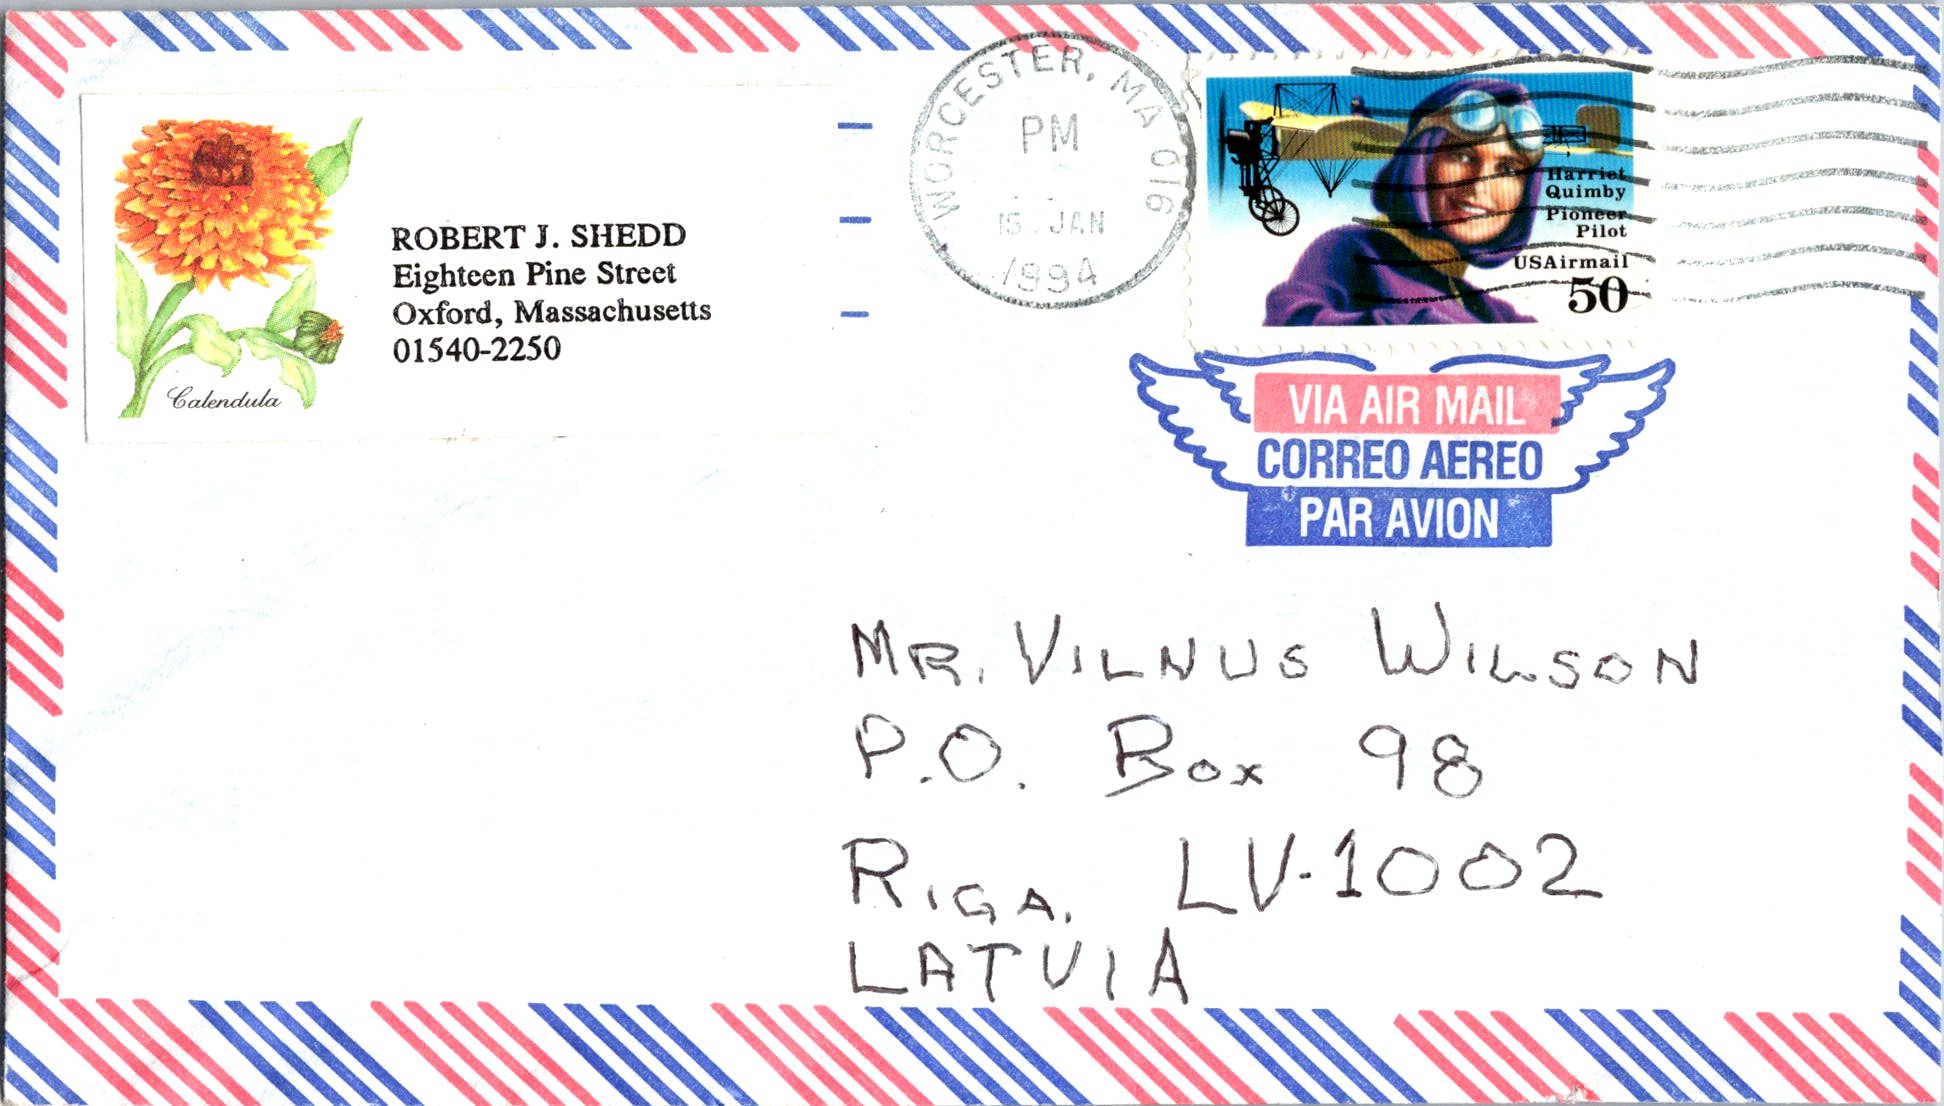 Calendula
ROBERT J. SHEDD
Eighteen Pine Street
Oxford, Massachusetts
01540-2250
WORCESTER, MA 016
PM
15 JAN
1994
Harriet
Quimby
Pioneer
Pilot
USAirmail
50
VIA AIR MAIL
CORREO AEREO
PAR AVION
MR. VILNUS WILSON
P.O. BOX 98
RIGA. LV-1002
LATVIA